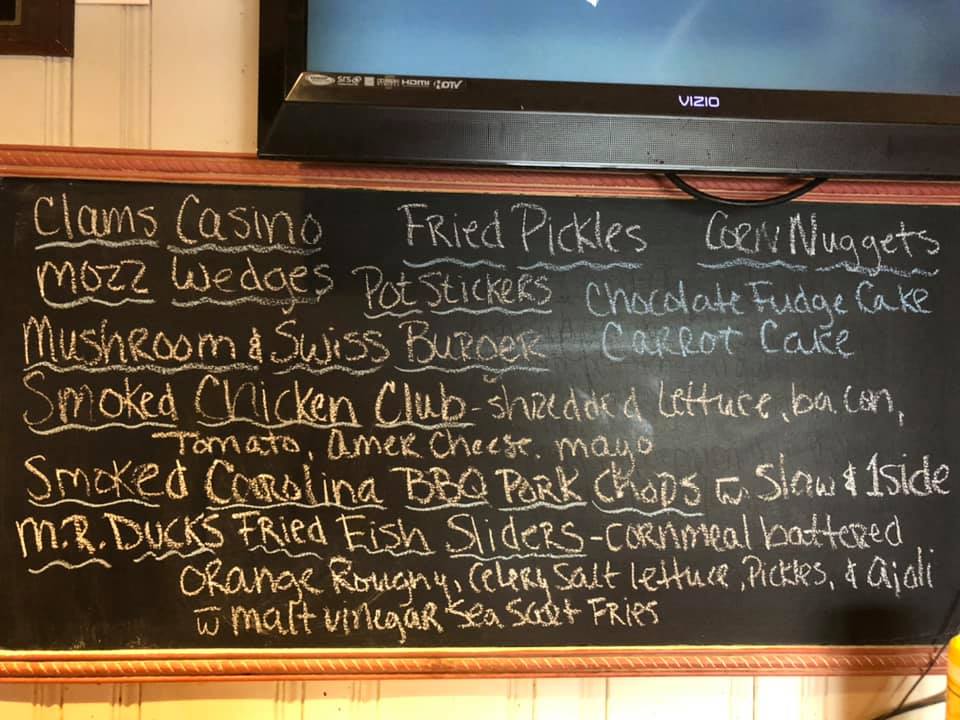 SRS HDMI HDTV
VIZIO
Clams Casino Fried Pickles Corn Nuggets
Mozz Wedges Pot Stickers Chocolate Fudge Cake
Mushroom & Swiss Burger Carrot Cake
Smoked Chicken Club - shredded lettuce, bacon,
Tomato, Amer Cheese, mayo
Smoked Carolina BBQ Pork Chops w Slaw & 1side
M.R. Ducks Fried Fish Sliders - cornmeal battered
Orange Roughy, Celery Salt lettuce, Pickles, & Ajoli
w malt vinegar Sea Salt Fries